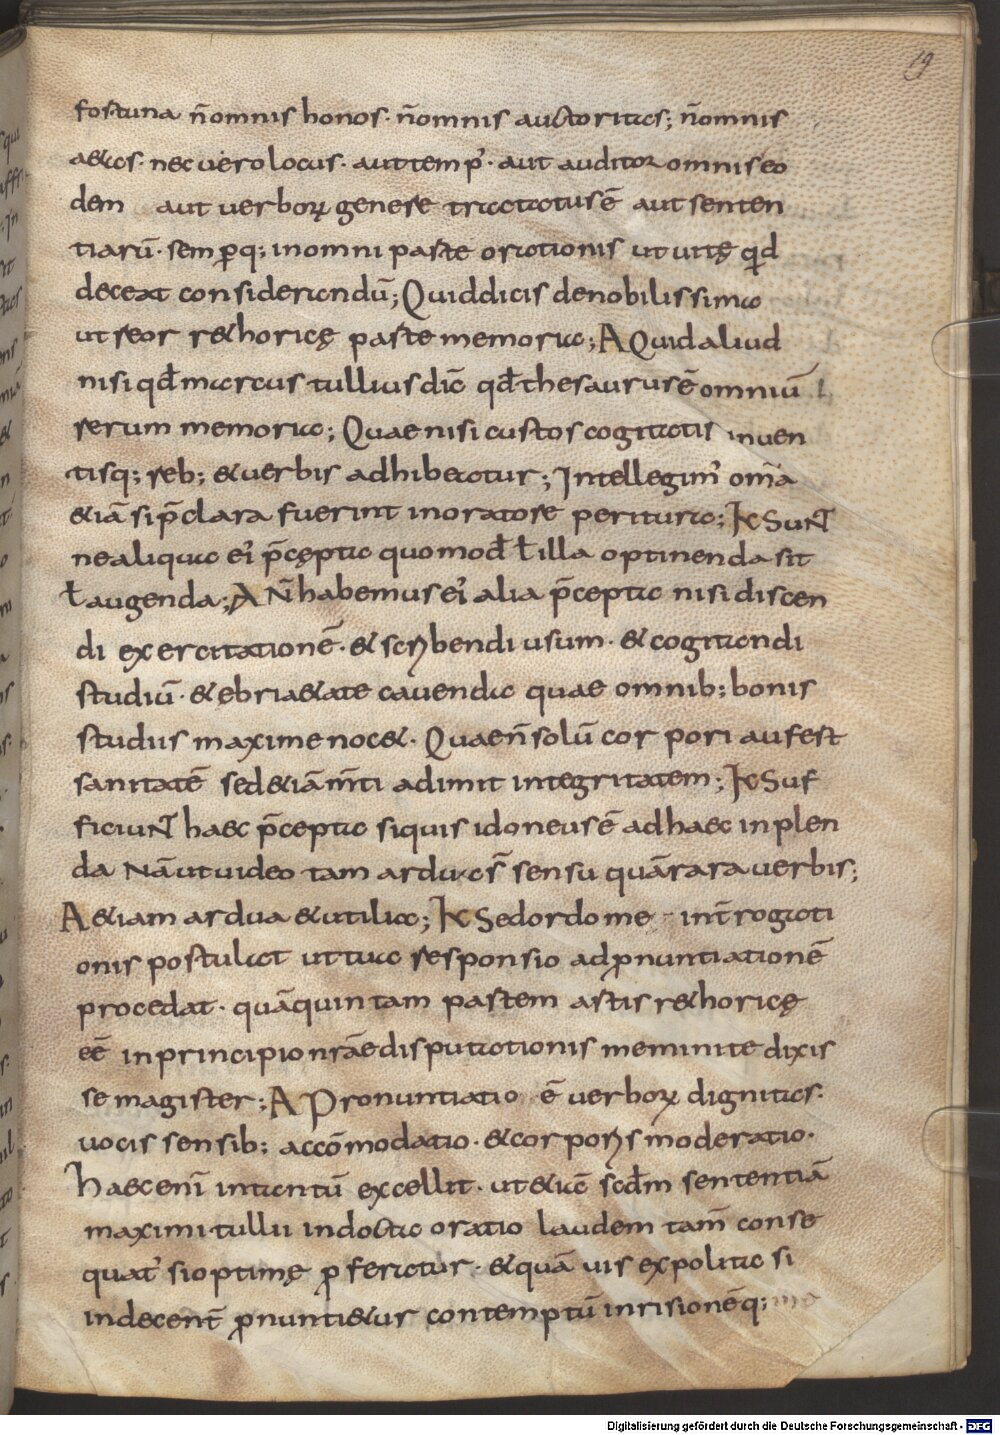 19
fortuna n̄omnis honos· n̄omnis auctoritas; n̄omnis
aetas· nec uero locus· aut temp᾽· aut auditor omnis eo
dem aut uerboꝝ genere tractatus ē aut senten
tiarū· semꝑq; inomni parte orationis ut uitę qid
deceat considerandū; Quid dicis denobilissima
ut reor rethoricę parte memoria; A Quid aliud
nisi qđ marcus tullius dic̄ qđ thesaurus ē omniū
rerum memoria; Quae nisi custos cogitatis inuen
tisq; reb; & uerbis adhibeatur; Intellegim᾽ om̄a
&iā si p̄clara fuerint inoratore peritura; K Sunt
ne aliqua ei᾽ p̄cępta quomod̄ ł illa optinenda sit
ł augenda; A N̄ habemus ei᾽ alia p̄cepta nisi discen
di exercitationē· & scribendi usum· & cogitandi
studiū· & ebri&ate cauenda quae omnib; bonis
studiis maxime noc&· Quae n̄ solū corpori aufert
sanitatē sed &iā m̄ti adimit integritatem; K Suf
ficiunt haec p̄cepta siquis idoneus ē ad haec inplen
da Nā ut uideo tam ardua s̄ sensu quā rara uerbis;
A &iam ardua & utilia; K Sed ordo me int̄rogati
onis postulat ut tua responsio ad ꝓnuntiationē
procedat· quā quintam partem artis r&horicę
eē inprincipio nr̄ae disputationis memini te dixis
se magister; A Pronuntiatio ē uerboꝝ dignitas·
uocis sensib; accōmodatio· & corporis moderatio·
Haec eni᾽ intantū excellit· ut &iā scđm sententiā
maximi tullii indocta oratio laudem tam̄ conse
quat᾽ si optimę ꝓferatur· & quā uis expolita si
indecent̄ ꝓnunti&ur contemptū inrisionēq;
Digitalisierung gefördert durch die Deutsche Forschungsgemeinschaft - DFG